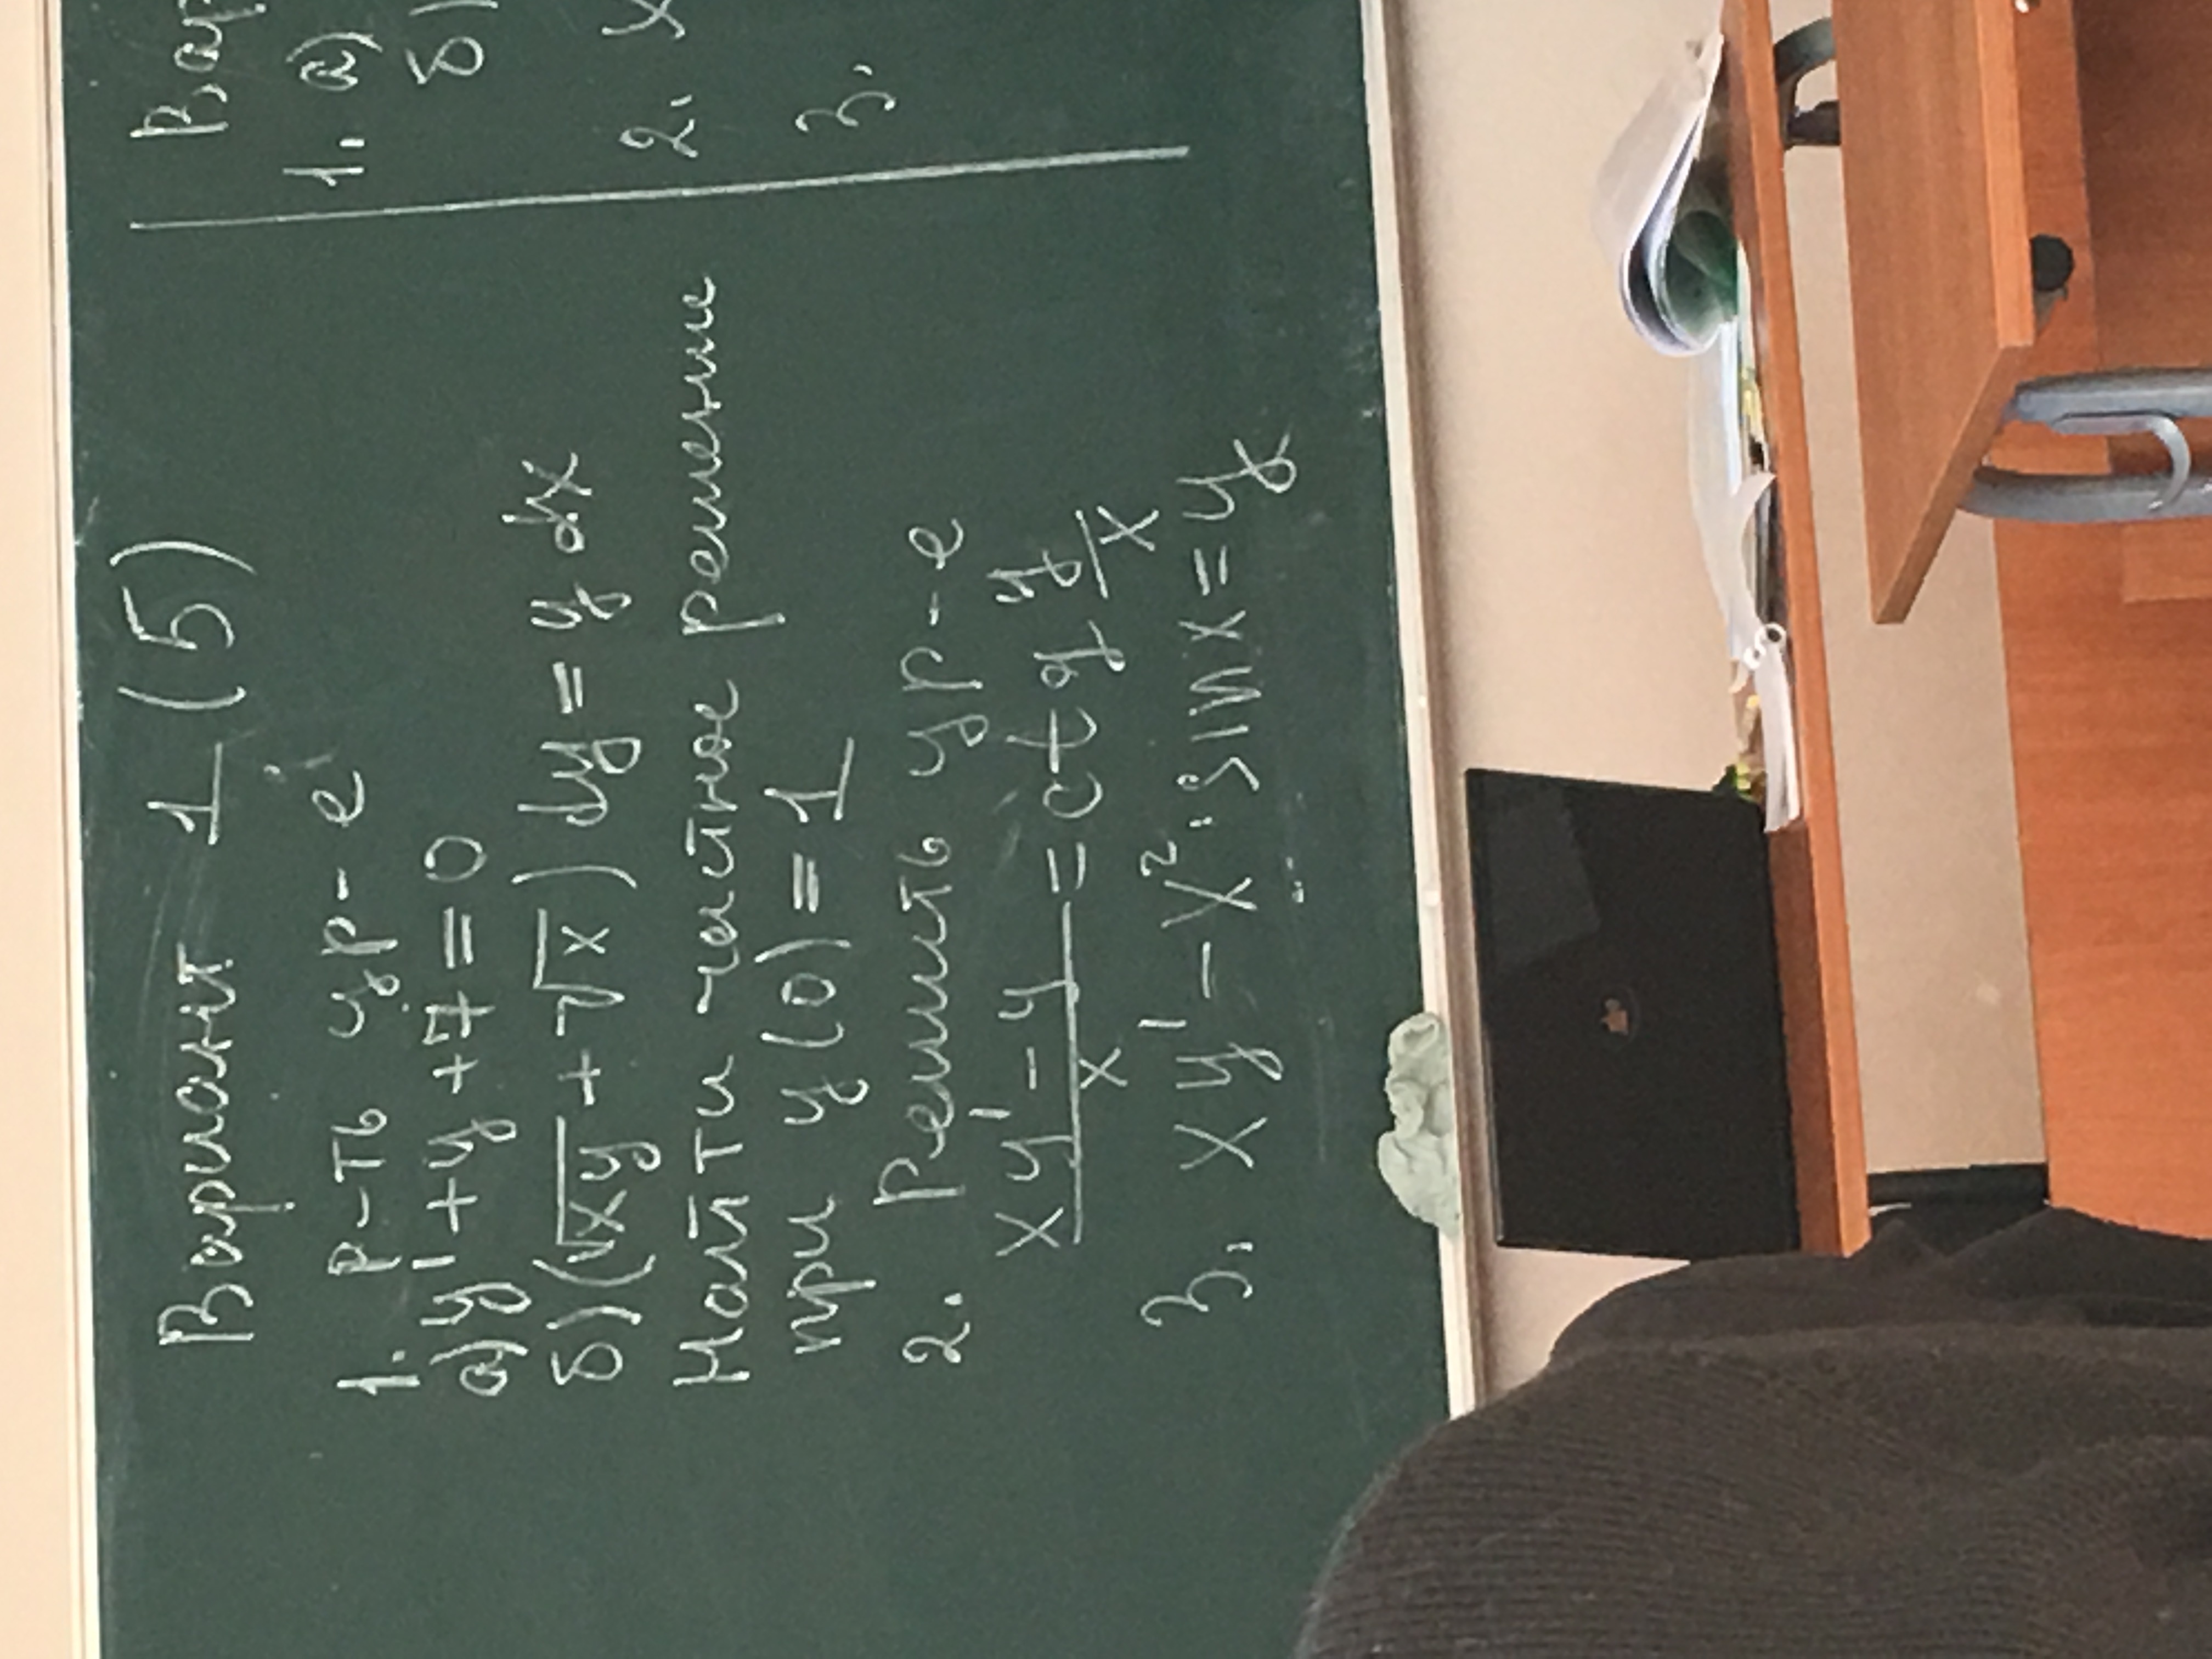 Вариант 1 (5)
1. р-ть ур-е
а) y' + y + 7 = 0
б) (√xy + √x) dy = y dx
Найти частное решение
при y(0) = 1
2. Решить ур-е
xy' - y / x = ctg y/x
3. xy' - x² · sin x = y
Вар
1. а)
б)
2. x
3.